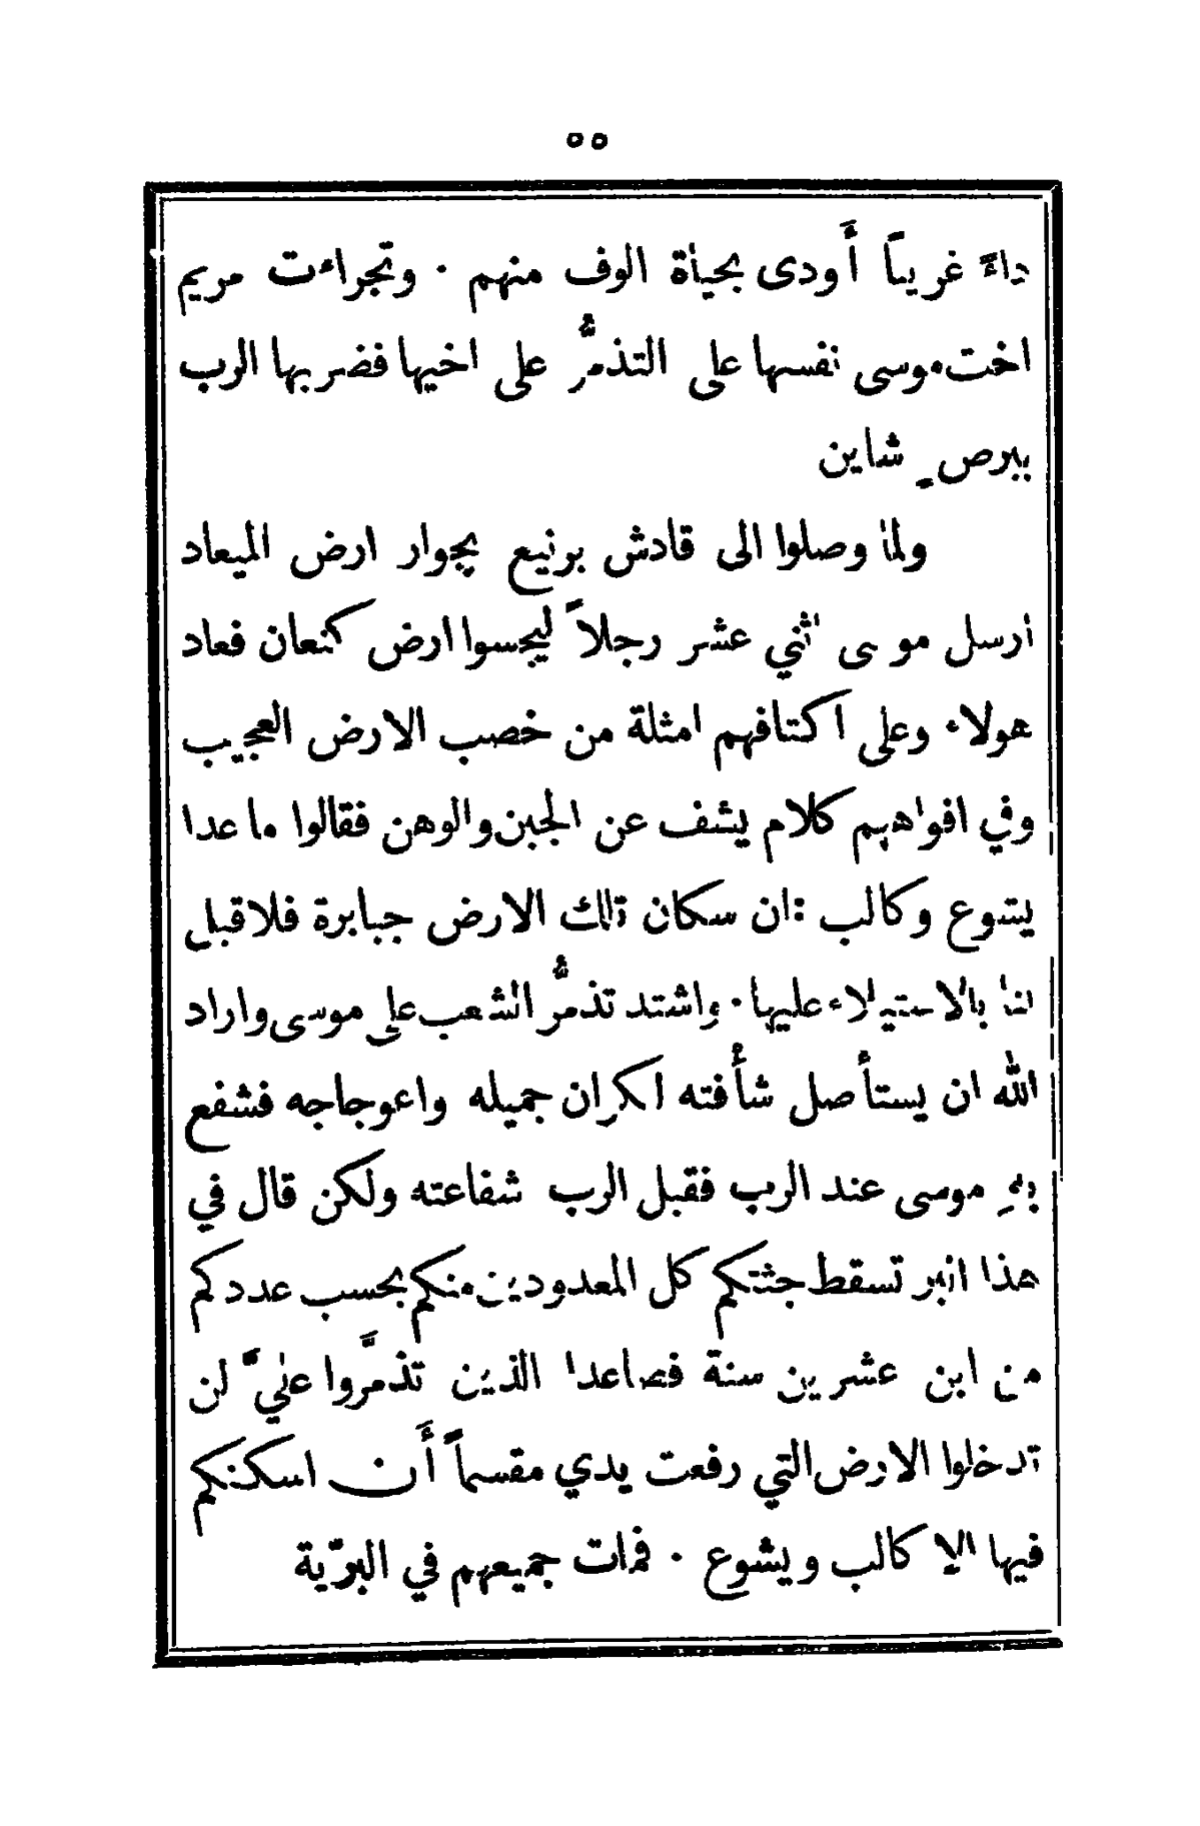 ٥٥
داءً غريباً أَودى بحياة الوف منهم · وتجراءت مريم
اخت موسى نفسها على التذمُّر على اخيها فضربها الرب
ببرصٍ شاين
ولما وصلوا الى قادش برنيع بجوار ارض الميعاد
ارسل موسى اثني عشر رجلاً ليجسوا ارض كنعان فعاد
هولاء وعلى اكتافهم امثلة من خصب الارض العجيب
وفي افواههم كلام يشف عن الجبن والوهن فقالوا ما عدا
يشوع وكالب : ان سكان تلك الارض جبابرة فلا قبل
لنا بالاستيلاء عليها · واشتد تذمُّر الشعب على موسى واراد
الله ان يستأصل شأفته لنكران جميله واعوجاجه فشفع
بهِ موسى عند الرب فقبل الرب شفاعته ولكن قال في
هذا البر تسقط جثتكم كل المعدودين منكم بحسب عددكم
من ابن عشرين سنة فصاعدا الذين تذمَّروا عليَّ لن
تدخلوا الارض التي رفعت يدي مقسماً أَن اسكنكم
فيها الا كالب ويشوع · فمات جميعهم في البرّية